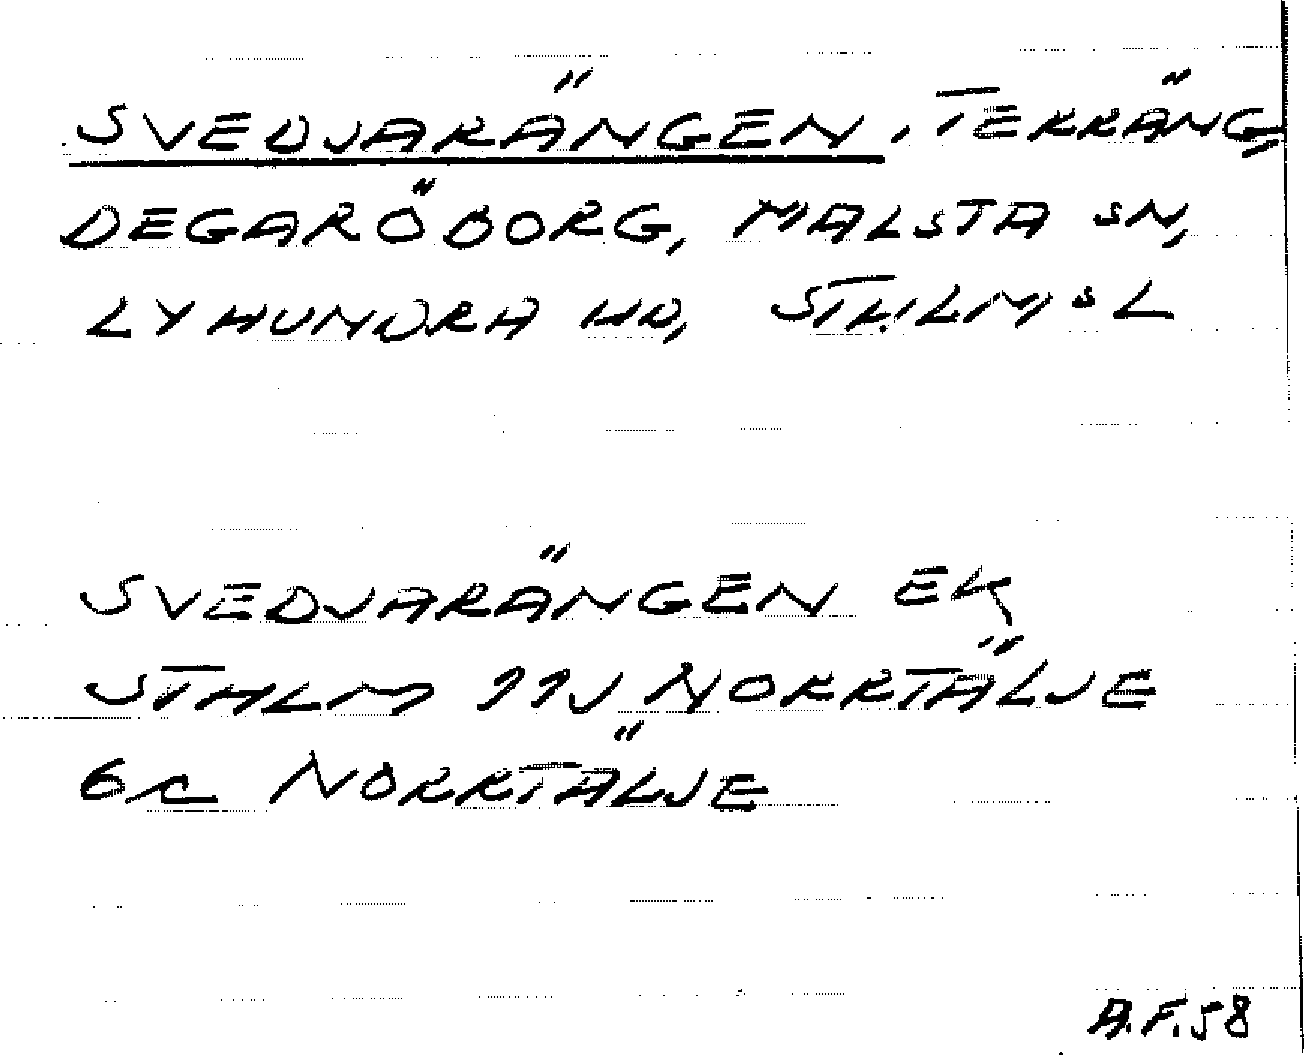 SVEDJARÄNGEN, TERRÄNG,
DEGARÖBORG, MALSTA SN,
LYHUNDRA HD, STHLMS L
SVEDJARÄNGEN EK
STHLM 11J NORRTÄLJE
6c NORRTÄLJE
A.F.58